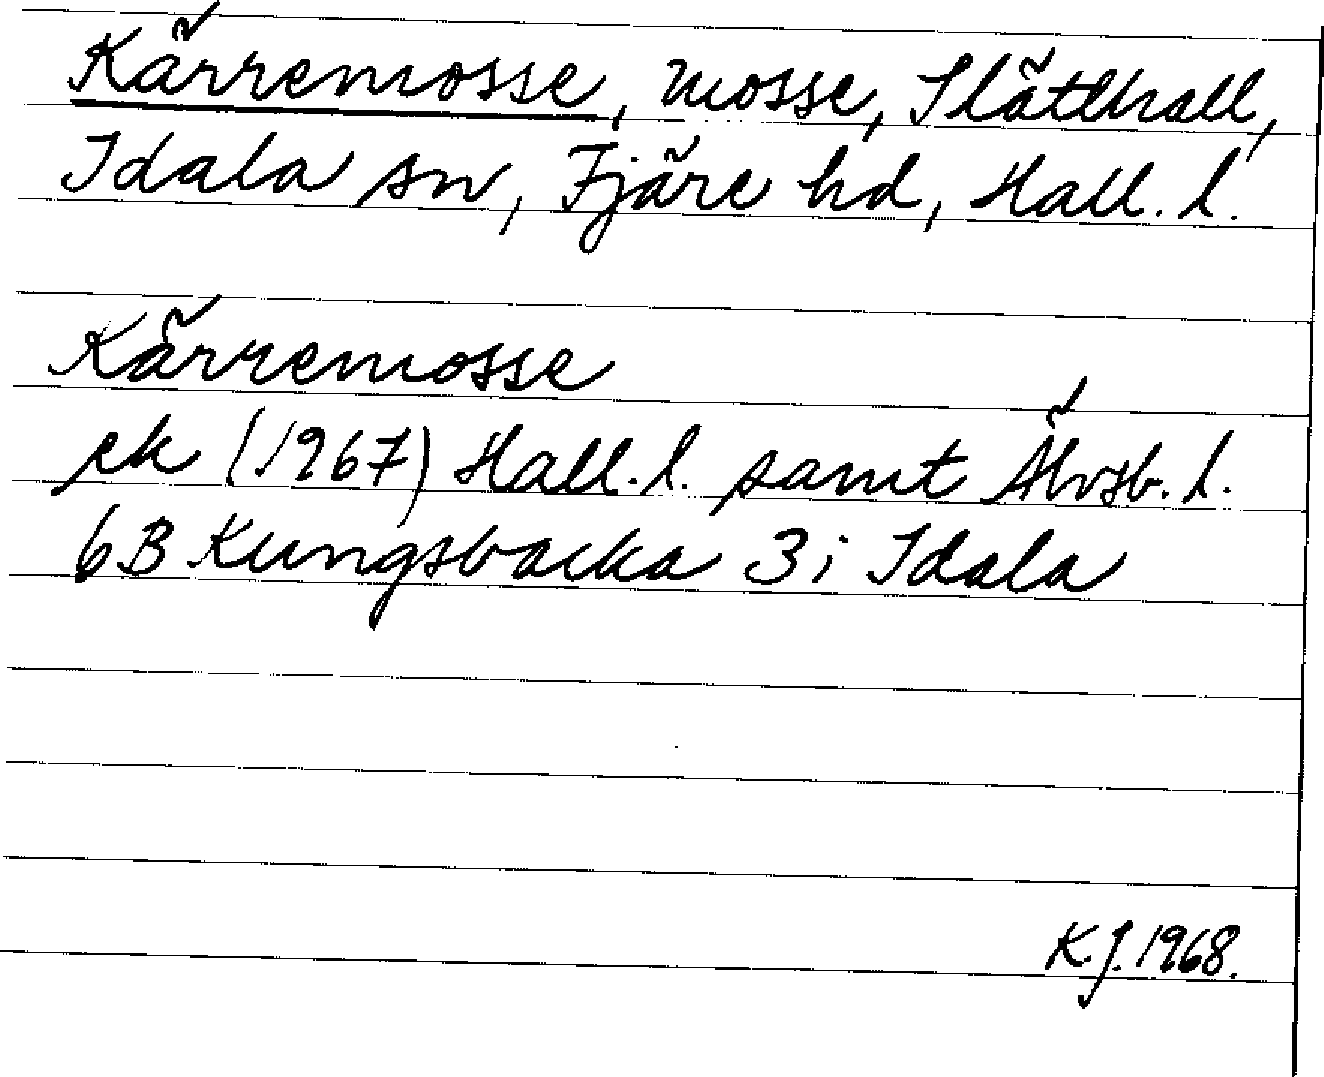 Kärremosse, mosse, Slätthall,
Idala sn, Fjäre hd, Hall. l.
Kärremosse
ek (1967) Hall. l. samt Älvsb. l.
6B Kungsbacka 3 i Idala
K.J. 1968.